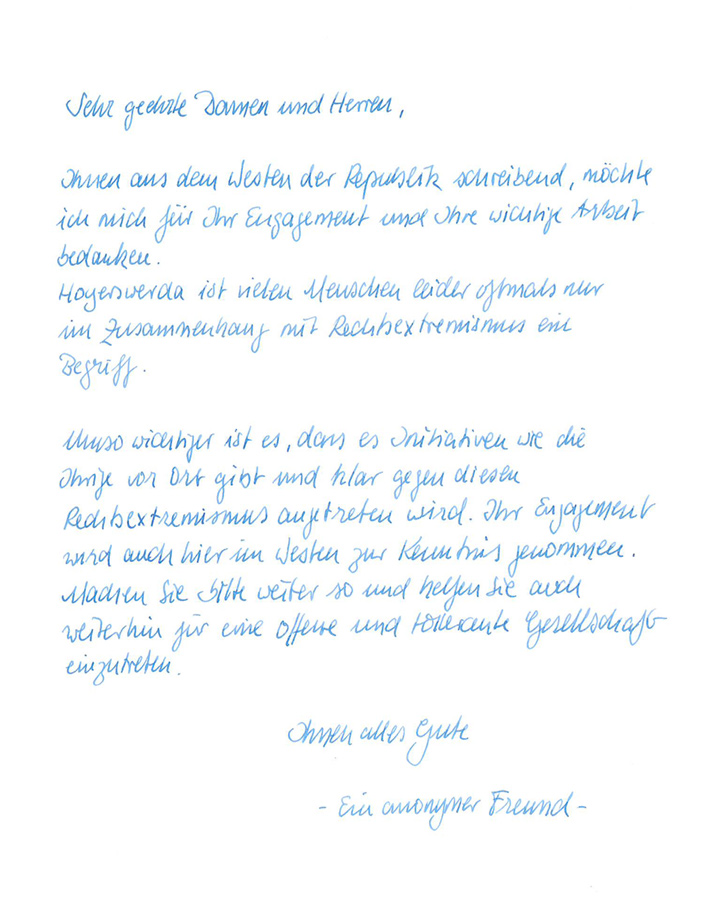 Sehr geehrte Damen und Herren,
Ihnen aus dem Westen der Republik schreibend, möchte
ich mich für Ihr Engagement und Ihre wichtige Arbeit
bedanken.
Hoyerswerda ist vielen Menschen leider oftmals nur
im Zusammenhang mit Rechtsextremismus ein
Begriff.
Umso wichtiger ist es, dass es Initiativen wie die
Ihrige vor Ort gibt und klar gegen diesen
Rechtsextremismus angetreten wird. Ihr Engagement
wird auch hier im Westen zur Kenntnis genommen.
Machen Sie bitte weiter so und helfen Sie auch
weiterhin für eine offene und tollerante Gesellschaft
einzutreten.
Ihnen alles Gute
- Ein anonymer Freund -